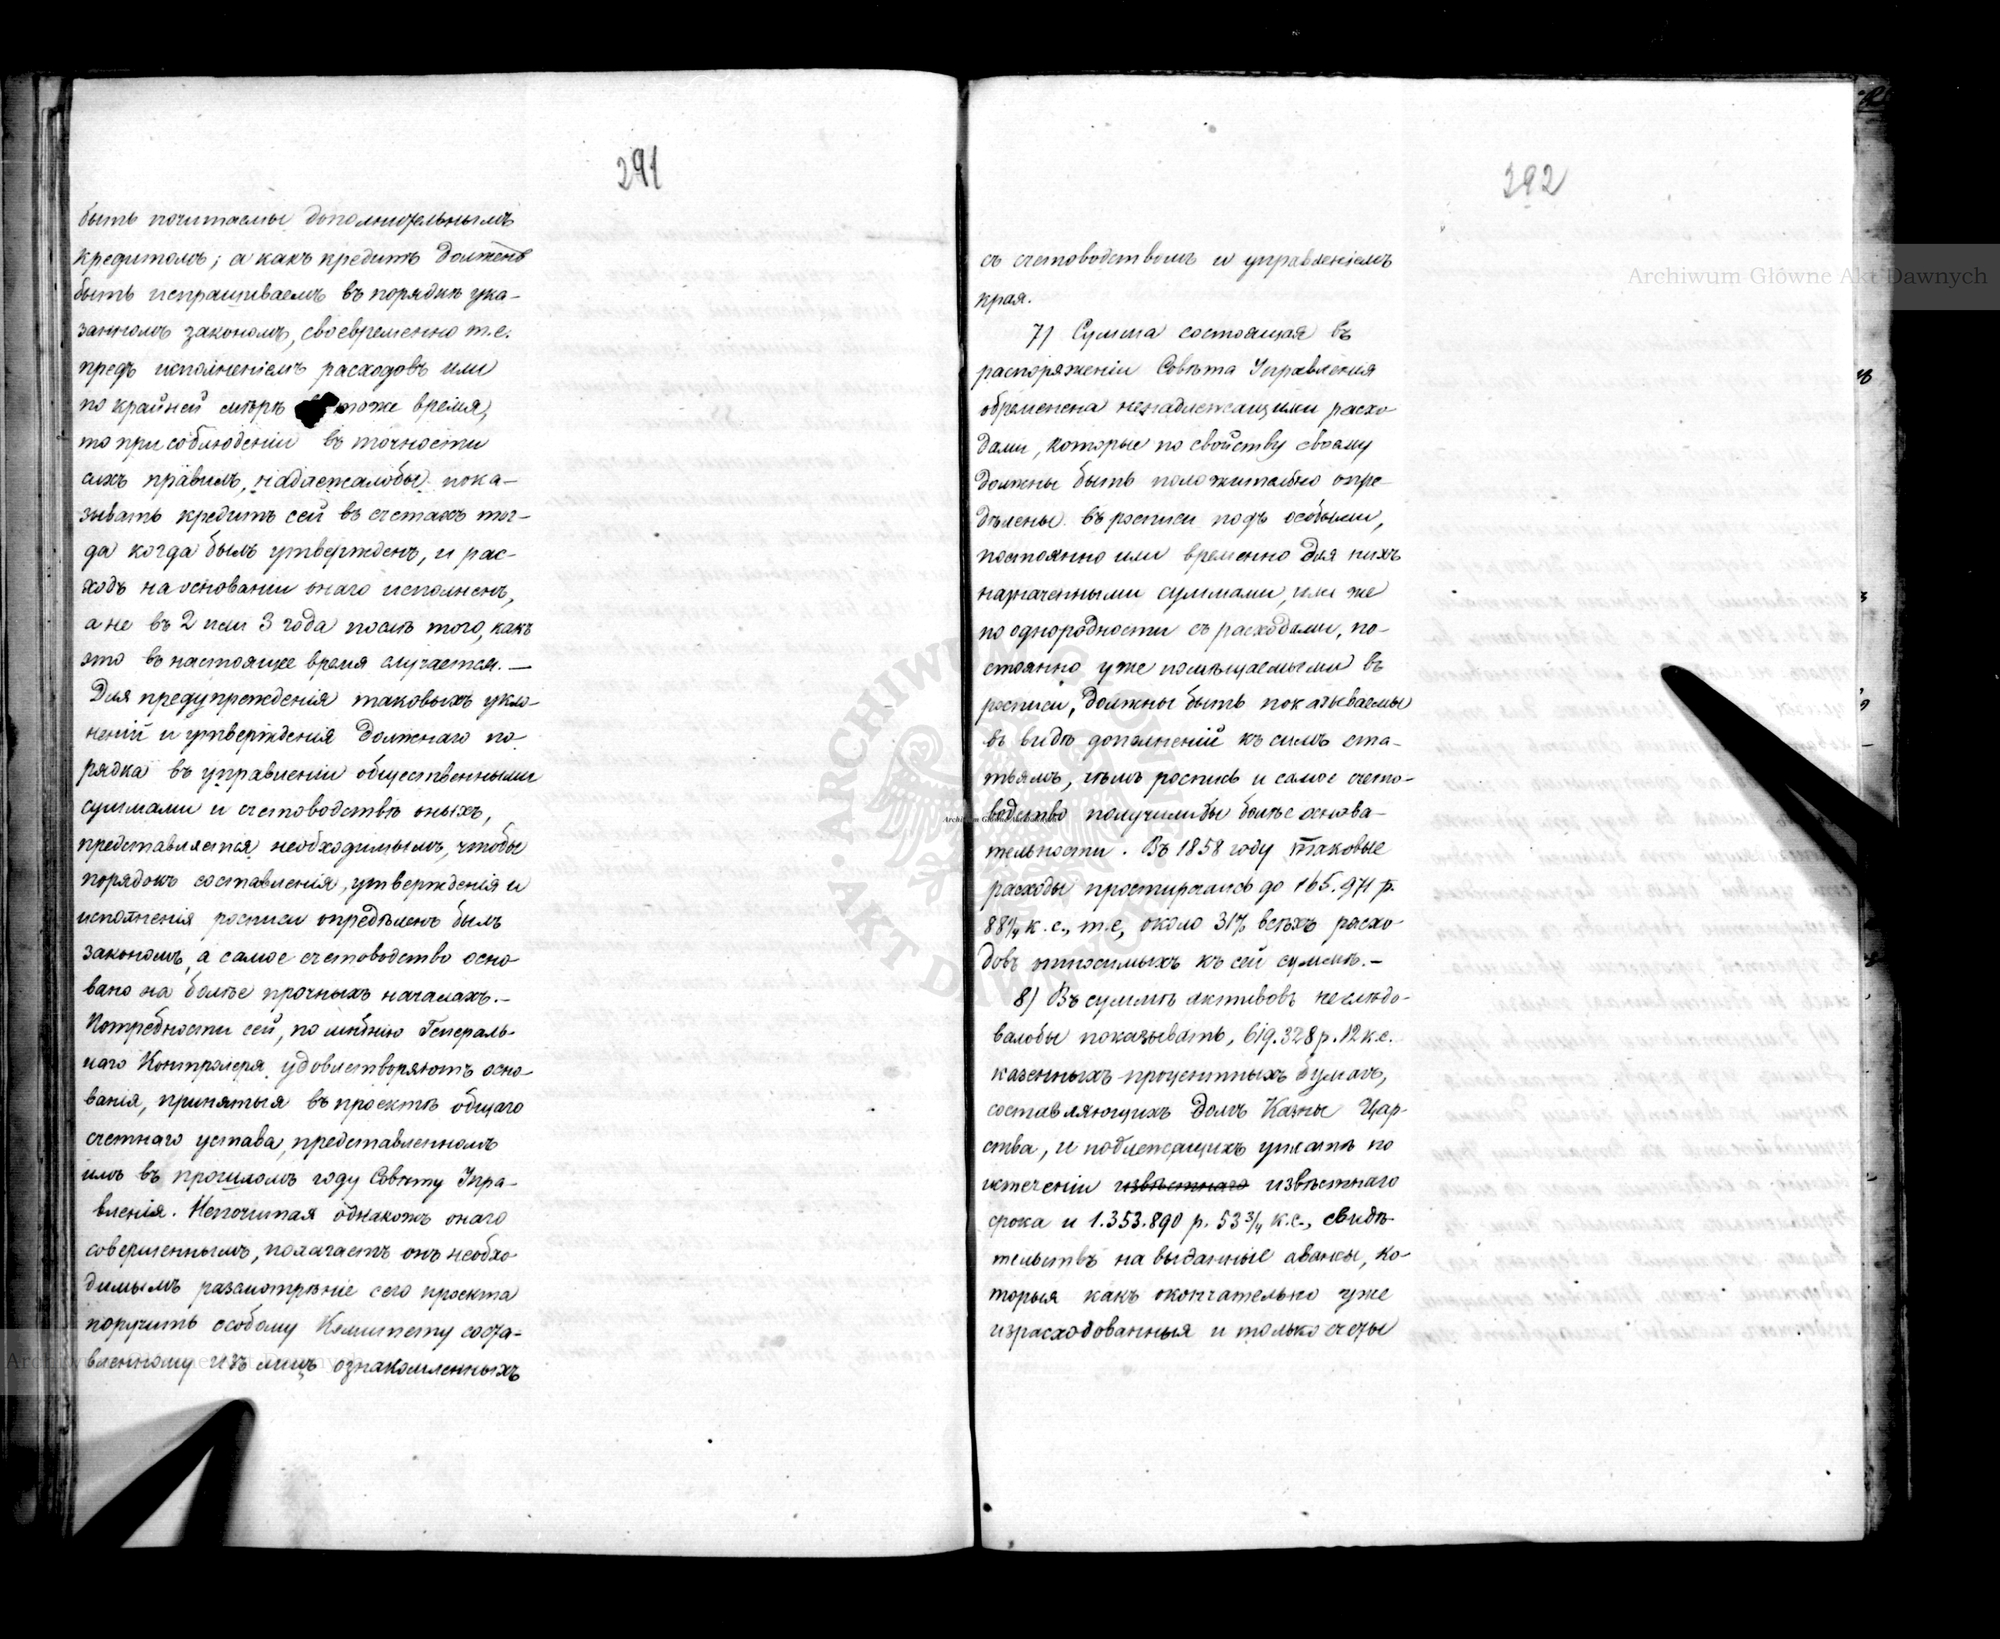 291
быть почитаемы дополнительнымъ
кредитомъ; а какъ кредитъ долженъ
быть испрашиваемъ въ порядкѣ ука-
занномъ закономъ, своевременно т.е.
предъ исполненіемъ расходовъ или
по крайней мѣрѣ тоже время,
то при соблюденіи въ точности
сихъ правилъ, надлежалобы пока-
зывать кредитъ сей въ счетахъ тог-
да когда былъ утвержденъ, и рас-
ходъ на основаніи онаго исполненъ,
а не въ 2 или 3 года послѣ того, какъ
это въ настоящее время случается. —
Для предупрежденія таковыхъ укло-
неній и утвержденія должнаго по-
рядка въ управленіи общественными
суммами и счетоводствѣ оныхъ,
представляется необходимымъ, чтобы
порядокъ составленія, утвержденія и
исполненія росписи опредѣленъ былъ
закономъ, а самое счетоводство осно-
вано на болѣе прочныхъ началахъ. —
Потребности сей, по мнѣнію Генераль-
наго Контролера, удовлетворяютъ осно-
ванія, принятыя въ проектѣ общаго
счетнаго устава, представленномъ
имъ въ прошломъ году Совѣту Упра-
вленія. Непочитая однакожъ онаго
совершеннымъ, полагаетъ онъ необхо-
димымъ разсмотрѣніе сего проекта
поручить особому Комитету соста-
вленному изъ лицъ ознакомленныхъ
292
съ счетоводствомъ и управленіемъ
края.
7) Сумма состоящая въ
распоряженіи Совѣта Управленія
обременена ненадлежащими расхо-
дами, которые по свойству своему
должны быть положительно опре-
дѣлены въ росписи подъ особыми,
постоянно или временно для нихъ
назначенными суммами, или же
по однородности съ расходами, по-
стоянно уже помѣщаемыми въ
росписи, должны быть показываемы
въ видѣ дополненій къ симъ ста-
тьямъ, чѣмъ роспись и самое счето-
водство получилибы болѣе основа-
тельности. Въ 1858 году таковые
расходы простирались до 165.971 р.
88¼ к.с., т.е. около 31% всѣхъ расхо-
довъ относимыхъ къ сей суммѣ. —
8) Въ суммѣ активовъ неслѣдо-
валобы показывать, 619.328 р. 12 к.с.
казенныхъ процентныхъ бумагъ,
составляющихъ долгъ Казны Цар-
ства, и подлежащихъ уплатѣ по
истеченіи извѣстнаго извѣстнаго
срока и 1.353.890 р. 53 ¾ к.с., свидѣ-
тельствъ на выданные авансы, ко-
торыя какъ окончательно уже
израсходованныя и только счеты
Archiwum Główne Akt Dawnych